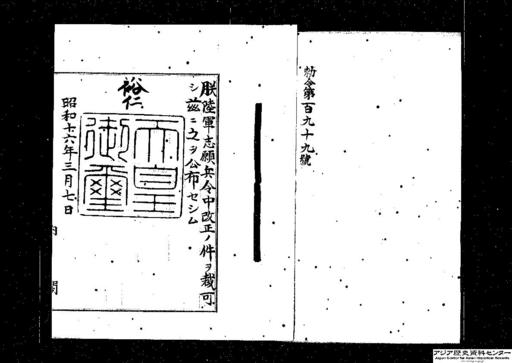 勅令第百九十九號
朕陸軍志願兵令中改正ノ件ヲ裁可
シ茲ニ之ヲ公布セシム
裕仁
天皇御璽
昭和十六年三月七日
内閣
アジア歴史資料センター
Japan Center for Asian Historical Records